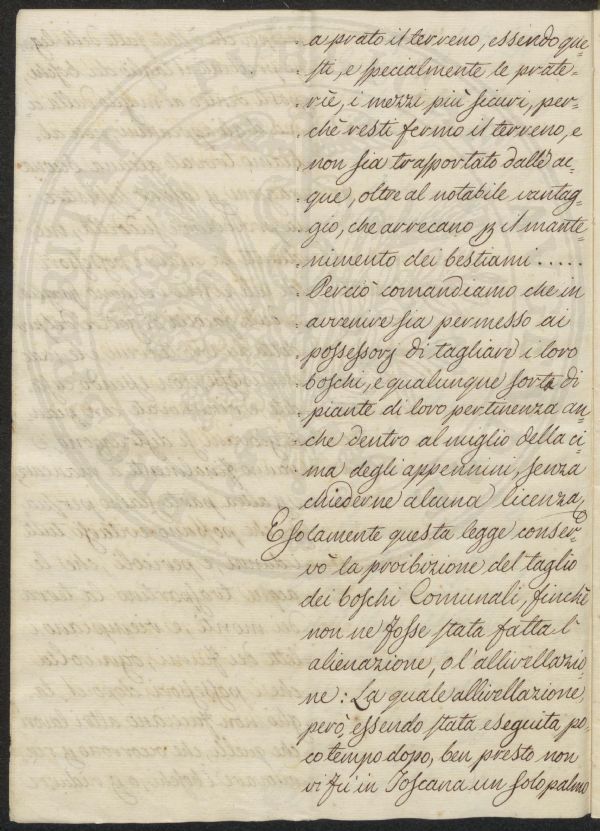 a prato il terreno, essendo que-
sti, e specialmente le prate-
rie, i mezzi più sicuri, per-
chè resti fermo il terreno, e
non sia trasportato dalle ac-
que, oltre al notabile vantag-
gio, che arrecano p il mante-
nimento dei bestiami.....
Perciò comandiamo che in
avvenire sia permesso ai
possessorj di tagliare i loro
boschi, e qualunque sorta di
piante di loro pertinenza an-
che dentro al miglio della ci-
ma degli appennini, senza
chiederne alcuna licenza,
E solamente questa legge conser-
vò la proibizione del taglio
dei boschi Comunali, finchè
non ne fosse stata fatta l'
alienazione, o l'allivellazio-
ne: La quale allivellazione,
però, essendo stata eseguita po-
co tempo dopo, ben presto non
vi fu in Toscana un solo palmo